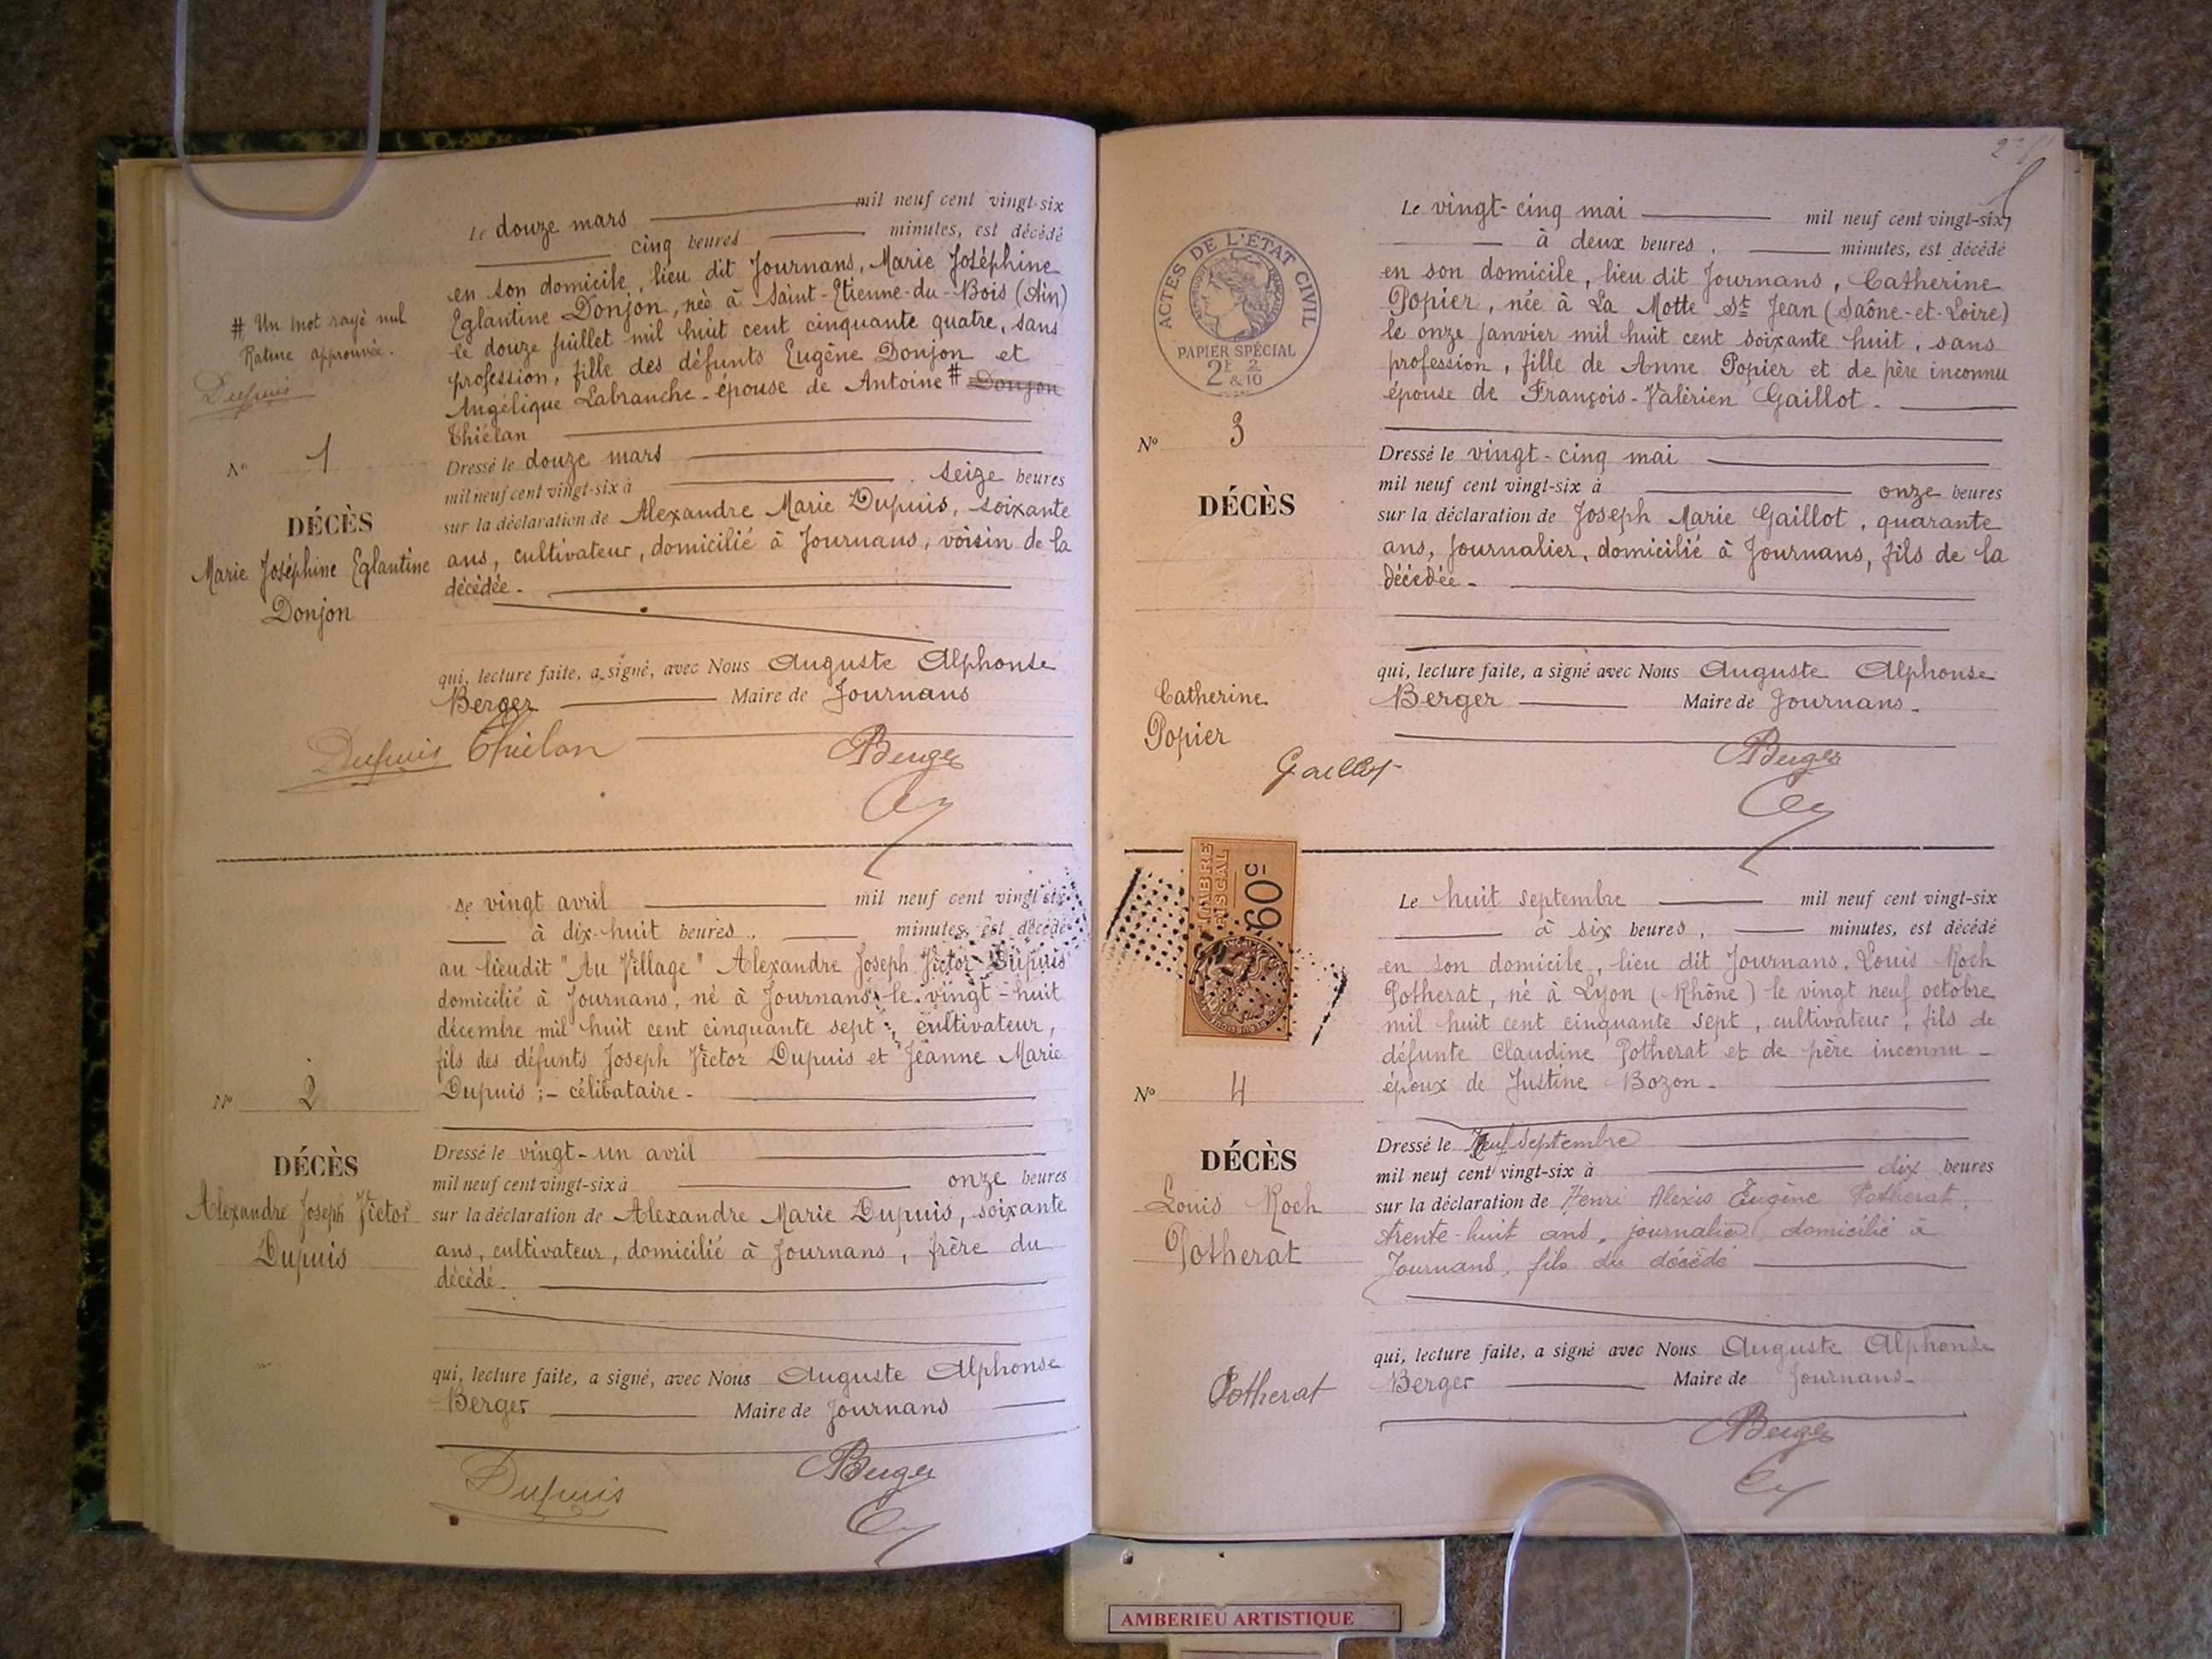 Le douze mars mil neuf cent vingt-six
cinq heures minutes, est décédé
en son domicile, lieu dit Journans, Marie Joséphine
Eglantine Donjon, née à Saint-Etienne-du-Bois (Ain)
le douze juillet mil huit cent cinquante quatre, sans
profession, fille des défunts Eugène Donjon et
Angélique Labranche - épouse de Antoine # Donjon
Thiélan
# Un mot rayé nul
Rature approuvée.
Dupuis
No 1
DÉCÈS
Marie Joséphine Eglantine
Donjon
Dressé le douze mars
mil neuf cent vingt-six à seize heures
sur la déclaration de Alexandre Marie Dupuis, soixante
ans, cultivateur, domicilié à Journans, voisin de la
décédée.
qui, lecture faite, a signé, avec Nous Auguste Alphonse
Berger Maire de Journans
Dupuis Thielan Berger
Le vingt avril mil neuf cent vingt-six
à dix-huit heures, minutes, est décédé
au lieudit "Au Village" Alexandre Joseph Victor Dupuis
domicilié à Journans, né à Journans le vingt-huit
décembre mil huit cent cinquante sept, cultivateur,
fils des défunts Joseph Victor Dupuis et Jeanne Marie
Dupuis ;- célibataire -
No 2
DÉCÈS
Alexandre Joseph Victor
Dupuis
Dressé le vingt-un avril
mil neuf cent vingt-six à onze heures
sur la déclaration de Alexandre Marie Dupuis, soixante
ans, cultivateur, domicilié à Journans, frère du
décédé.
qui, lecture faite, a signé, avec Nous Auguste Alphonse
Berger Maire de Journans
Dupuis Berger
2
ACTES DE L'ÉTAT CIVIL
PAPIER SPÉCIAL
2E 2
& 10
Le vingt-cinq mai mil neuf cent vingt-six,
à deux heures, minutes, est décédé
en son domicile, lieu dit Journans, Catherine
Popier, née à La Motte St Jean (Saône-et-Loire)
le onze janvier mil huit cent soixante huit, sans
profession, fille de Anne Popier et de père inconnu
épouse de François-Valérien Gaillot.
No 3
DÉCÈS
Catherine
Popier
Dressé le vingt-cinq mai
mil neuf cent vingt-six à onze heures
sur la déclaration de Joseph Marie Gaillot, quarante
ans, journalier, domicilié à Journans, fils de la
décédée -
qui, lecture faite, a signé avec Nous Auguste Alphonse
Berger Maire de Journans.
Gaillot Berger
TIMBRE
FISCAL
60c
Le huit septembre mil neuf cent vingt-six
à six heures, minutes, est décédé
en son domicile, lieu dit Journans, Louis Roch
Potherat, né à Lyon (Rhône) le vingt neuf octobre
mil huit cent cinquante sept, cultivateur, fils de
défunte Claudine Potherat et de père inconnu -
époux de Justine Bozon -
No 4
DÉCÈS
Louis Roch
Potherat
Dressé le Neuf septembre
mil neuf cent vingt-six à dix heures
sur la déclaration de Henri Alexis Eugène Potherat,
trente-huit ans, journalier, domicilié à
Journans, fils du décédé
qui, lecture faite, a signé avec Nous Auguste Alphonse
Berger Maire de Journans -
Potherat
Berger
AMBERIEU ARTISTIQUE